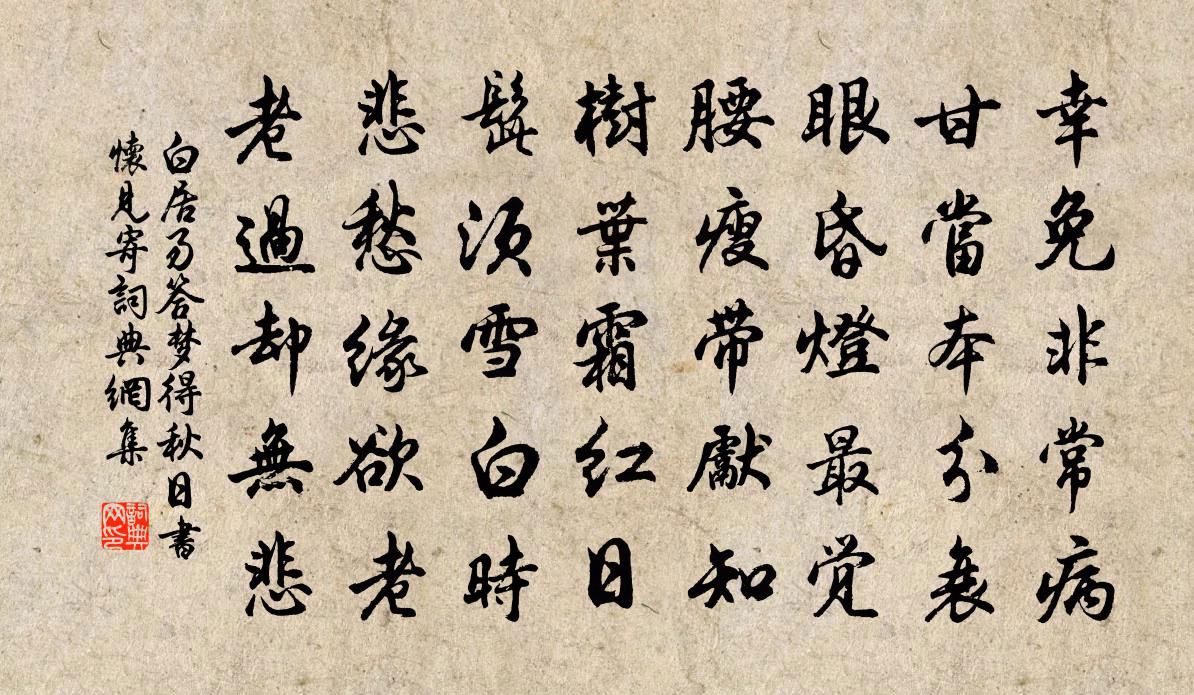 幸免非常病
甘當本分衰
眼昏燈最覺
腰瘦帶獻知
樹葉霜紅日
髭須雪白時
悲愁緣欲老
老過却無悲
白居易答梦得秋日書
懷見寄詞典網集
詞典网印